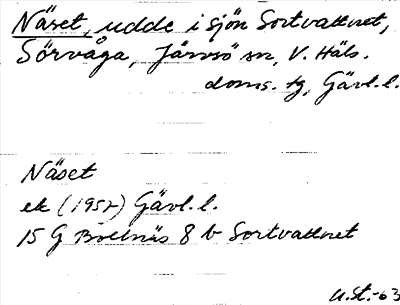 Näset, udde i sjön Sortvattnet,
Sörvåga, Järvsö sn, V. Häls.
doms. tg, Gävl. l.
Näset
ek (1957) Gävl. l.
15 G Bollnäs 8 b Sortvattnet
U.St.-63